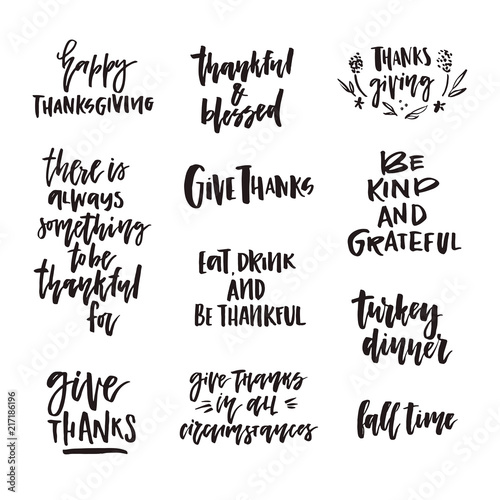 happy
THANKSGIVING
there is
always
something
to be
thankful
for
give
THANKS
thankful
&
blessed
GIVE THANKS
EAT, DRINK
AND
BE THANKFUL
give THANKS
in all
circumstances
THANKS
giving
BE
KIND
AND
GRATEFUL
turkey
dinner
fall time
Adobe Stock | #217186196